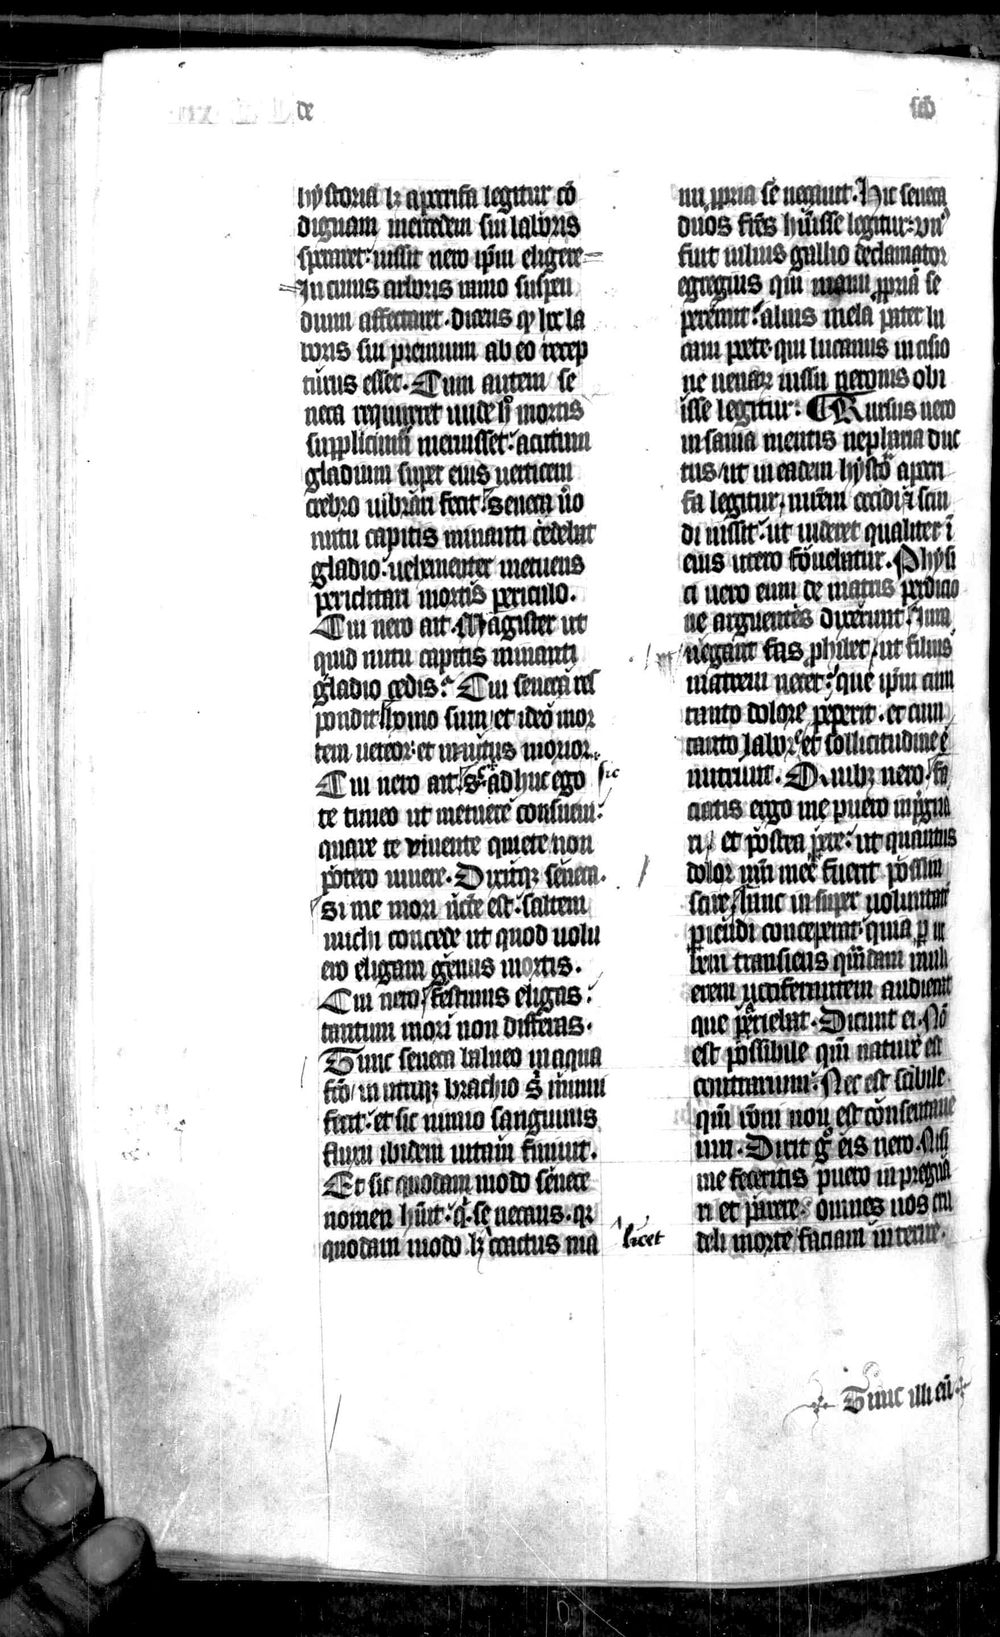 de
scō
hystoria lꝫ apocrifa legitur cō
dignam mercedem sui laboris
speraret· iussit nero ip̄m eligere
In cuius arboris ramo suspen
dium affectaret· dicens qꝫ hec la
boris sui premium ab eo recep
turus esset· Cum autem se
neca requireret unde hoc mortis
supplicium meruisset· acutum
gladium super eius verticem
crebro vibrari fecit· Seneca v̊o
nutu capitis minanti cedebat
gladio· vehementer metuens
periclitari mortis periculo·
Cui nero ait· Magister ut
quid nutu capitis minanti
gladio cedis· Cui seneca res
pondit homo sum et ideo mor
tem vereor· et invitus morior·
Cui nero ait· Sic adhuc ego
te timeo ut metuere consuevi·
quare te vivente quiete non
potero vivere· Dixitqꝫ seneca·
Si me mori n̄cē est· saltem
michi concede ut quod volu
ero eligam genus mortis·
Cui nero festinus eligas·
tantum mori non differas·
Tunc seneca balneo in aqua
fc̄o in utroqꝫ brachio se minui
fecit· et sic nimio sanguinis
fluxu ibidem vitam finivit·
Et sic quodam modo senece
nomen hūit· q̄· se necans· qꝛ
quodam modo lꝫ coactus ma
sic
licet
nu ꝓpria se necavit· Hic seneca
duos frēs hūisse legitur· vn̄
fuit iulius gallio declamator
egregius qui manu ꝓpria se
peremit· alius mela pater lu
cani poete· qui lucanus incisio
ne venaꝝ iussu neronis obi
isse legitur· Rursus nero
insania mentis nepharia duc
tus ut in eadem hystō apocri
fa legitur, mrēm occidi ⁊ scin
di iussit· ut videret qualiter ī
eius utero fovebatur· Physi
ci vero eum de matris perdicio
ne arguentes dixerunt· Iura
negant fas prohibet ut filius
matrem necet· que ip̄m cum
tanto dolore peperit· et cum
tanto labore et sollicitudine
nutrivit· Quibꝫ nero· fa
ciatis ergo me puero inp̄gna
ri et postea pare· ut quantus
dolor mr̄i mee fuerit possim
scire· Hanc insuper voluntatē
pariendi conceperat· quia per ur
bem transiens quādam muli
erem vociferantem audierit
que pariebat· Dicunt ei· Nō
est possibile quod nature est
contrarium· Nec est scibile
quod rōni non est consentane
um· Dixit g̊ eis nero· Nisi
me feceritis puero inpregna
ri et parere· omnes vos cru
deli morte faciam interire·
Tunc illi eū